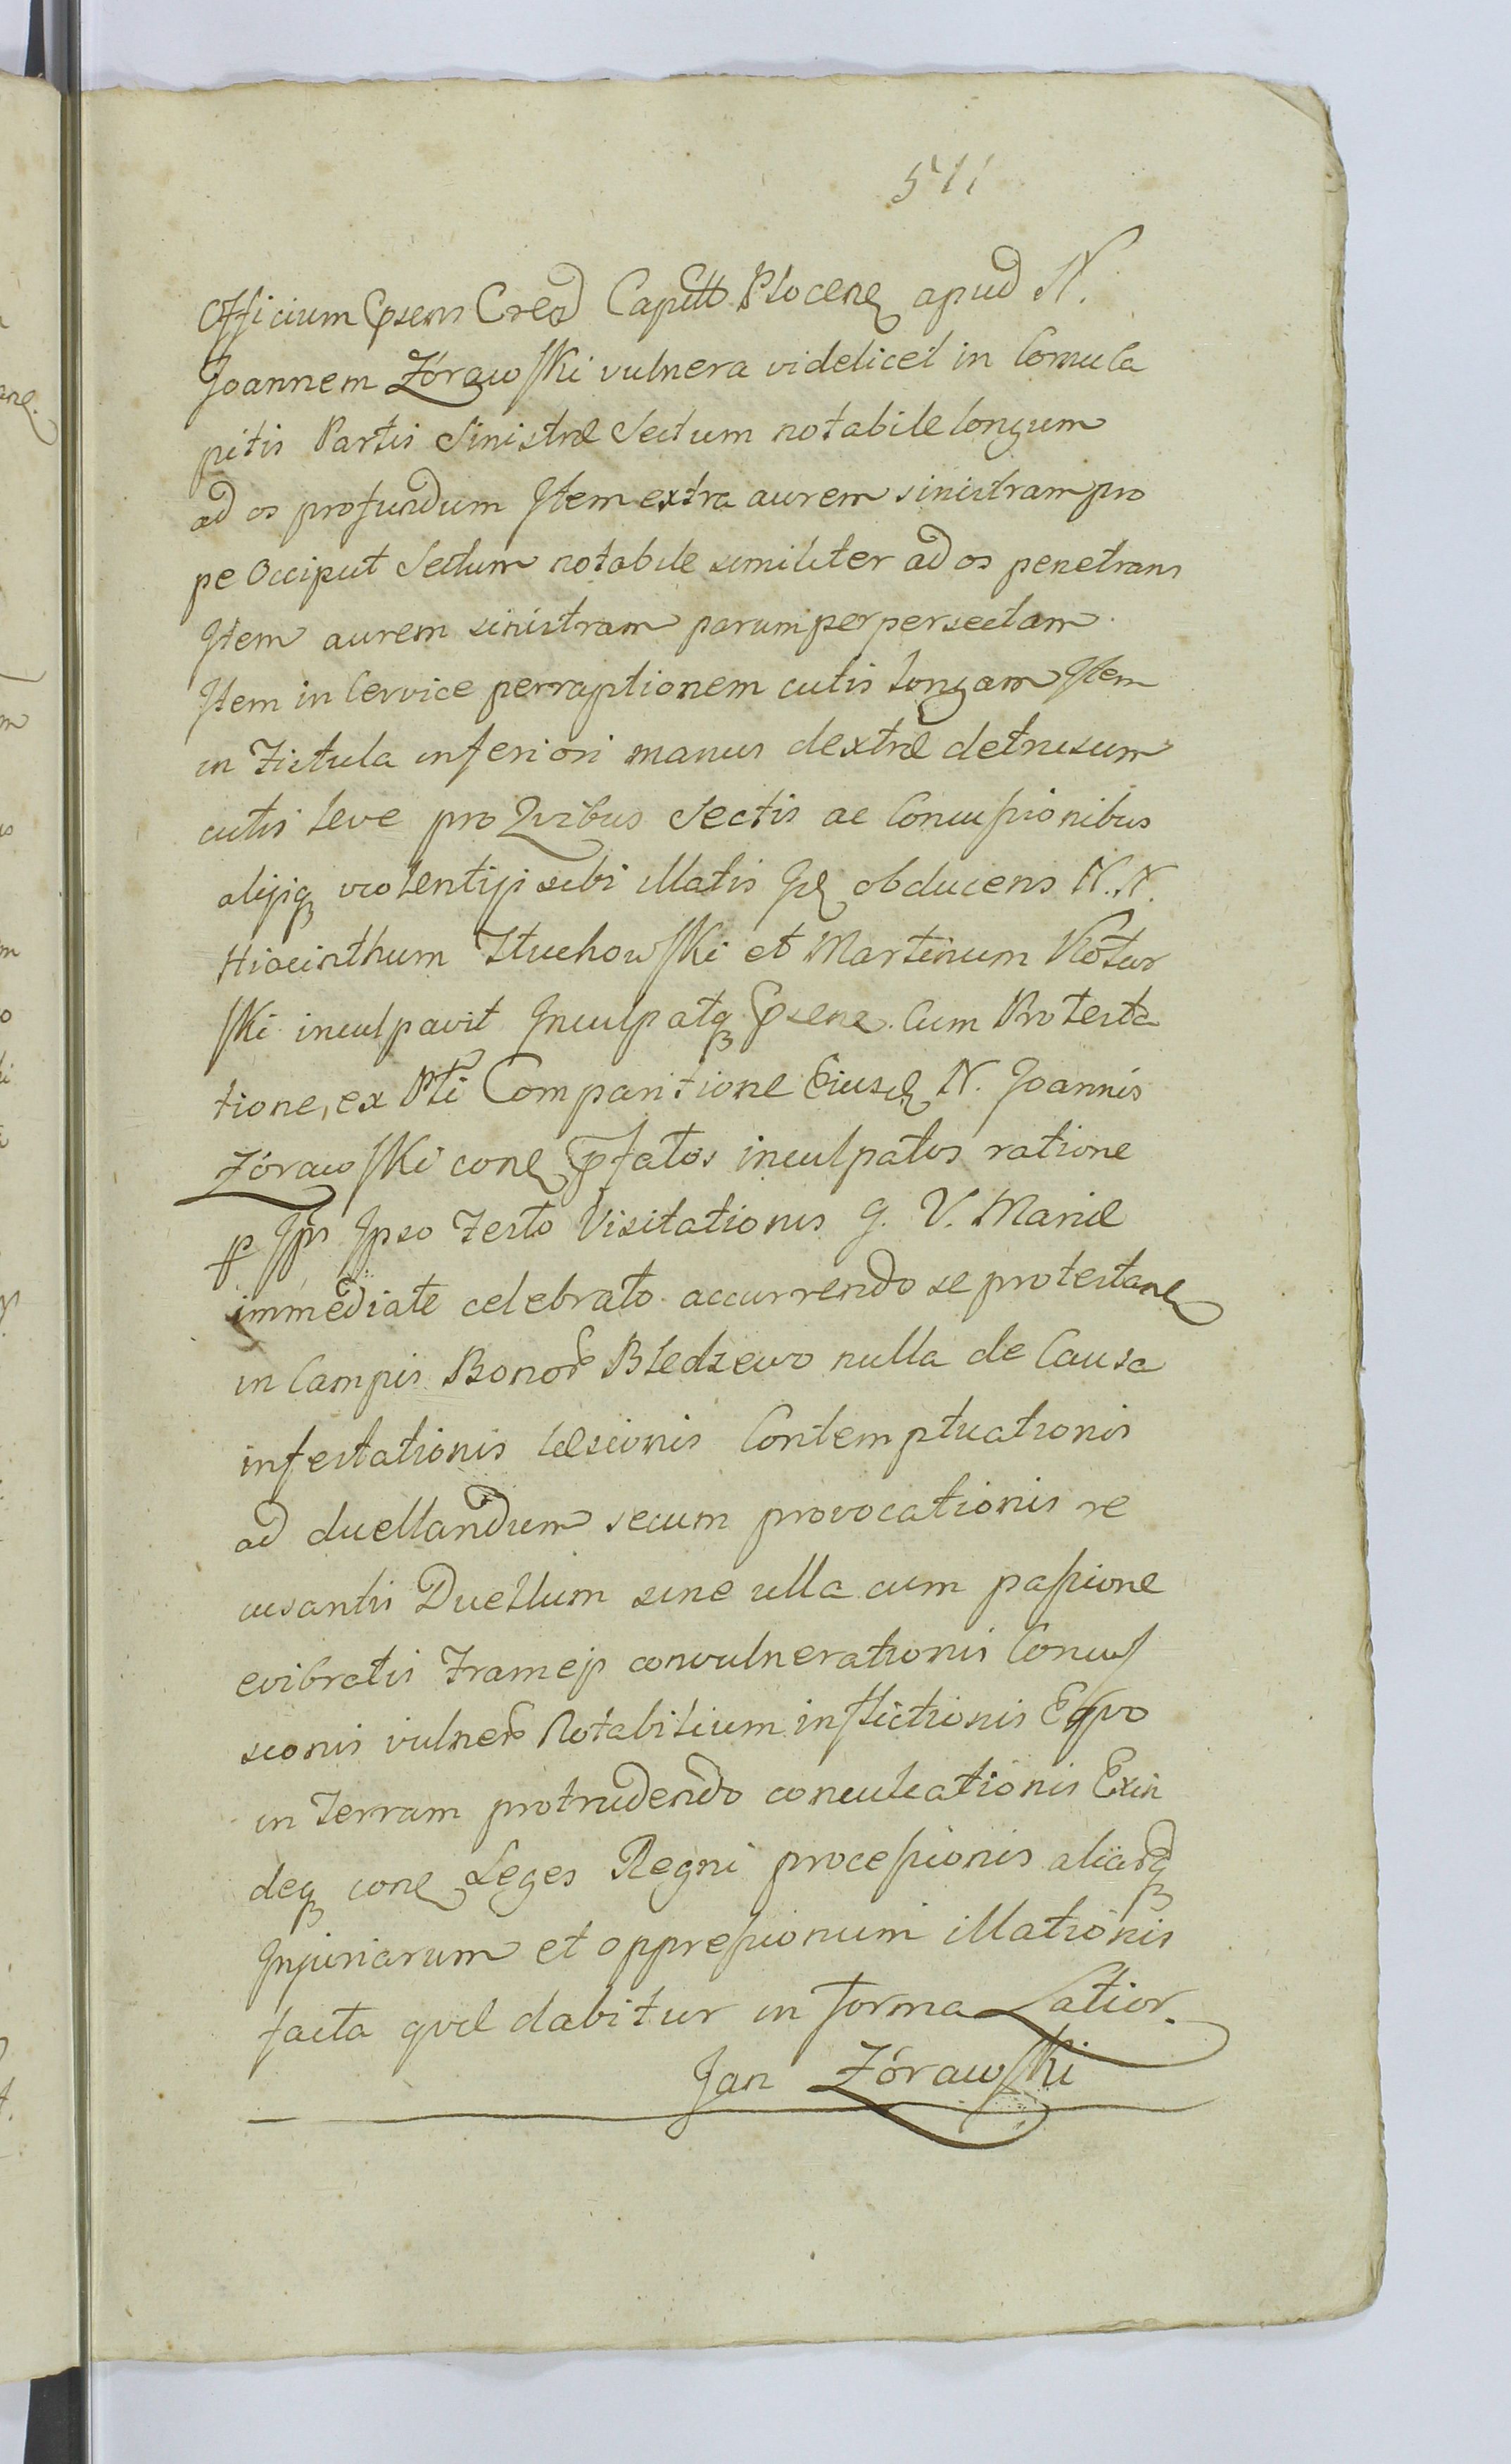 511
Officium Cpsens Cred Capitt Plocens apud N.
Joannem Zórawski vulnera videlicet in Comu Ca
pitis Partis Sinistræ Sectum notabile longum
ad os profundum Item extra aurem sinistram pro
pe Occiput Sectum notabile similiter ad os penetrans
Item aurem sinistram parumper persectam.
Item in Cervice perraptionem cutis longam Item
in Fistula inferiori manus dextræ detrusum
cutis leve pro Quibus Sectis ac Concussionibus
alijsq violentijs sibi illatis Ide obducens N. N.
Hiacinthum Stuchowski et Martinum Kotar
ski inculpavit Inculpatq psens. Cum Protesta
tione, ex Pti Comparitione Eiusd N. Joannis
Zórawski cons pfatos inculpatos ratione
p Ips Ipso Festo Visitationis G. V. Mariæ
immediate celebrato accurrendo se protestans
in Campis Bonor Bledzewo nulla de Causa
infestationis læsionis Contemptuationis
ad duellandum secum provocationis re
cusantis Duellum sine ulla cum passione
evibratis Frameis convulnerationis Concus
sionis vulner Notabilium inflictionis Eqvo
in Terram protrudendo conculcationis Exin
deq cons Leges Regni processionis aliarq
Injuriarum et oppressionum illationis
facta qvæ dabitur in forma Latior.
Jan Zórawski